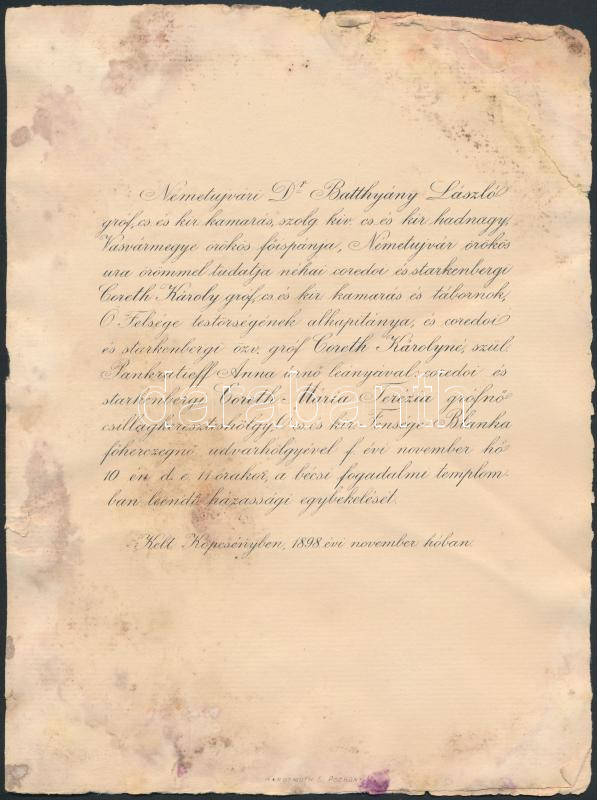 Németujvári Dr Batthyány László
gróf, cs. és kir. kamarás, szolg. kiv. cs. és kir. hadnagy,
Vasvármegye örökös főispánja, Németujvár örökös
ura örömmel tudatja néhai coredoi és starkenbergi
Coreth Károly gróf, cs. és kir. kamarás és tábornok,
Ő Felsége testőrségének alkapitánya, és coredoi
és starkenbergi özv. gróf Coreth Károlyné, szül.
Pankratieff Anna úrnő leányával: coredoi és
starkenbergi Coreth Mária Terézia grófnő
csillagkereszteshölgy, cs. és kir. Fensége Blanka
főherczegnő udvarhölgyével f. évi november hó
10 én d. e. 11 órakor, a bécsi fogadalmi templom-
ban leendő házassági egybekelését.
Kelt Köpcsényben, 1898. évi november hóban.
HARTMUTH L. POZSONY
darabanth